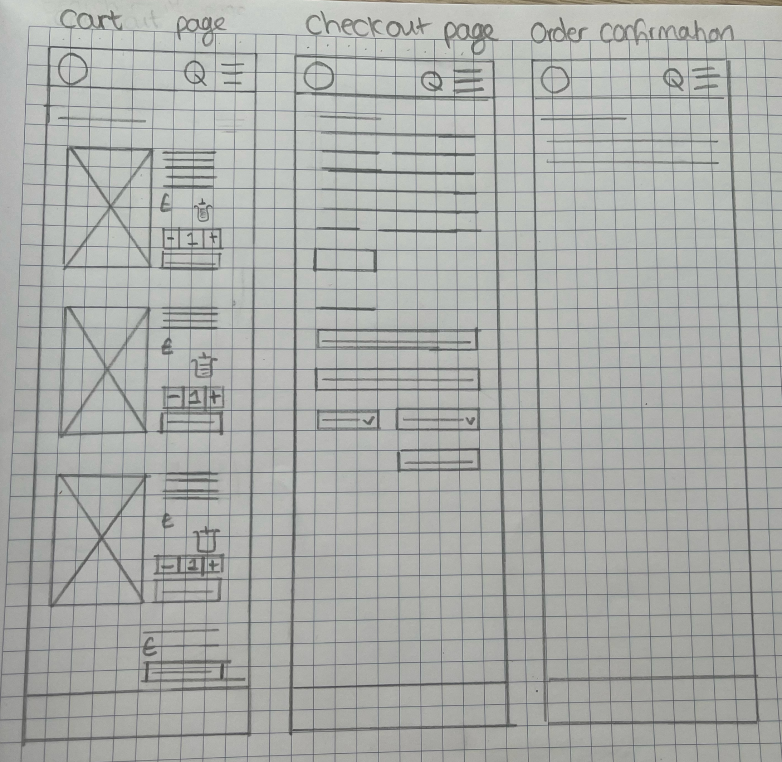 cart page
checkout page
order confirmation
€
- 1 +
€
- 1 +
€
- 1 +
€